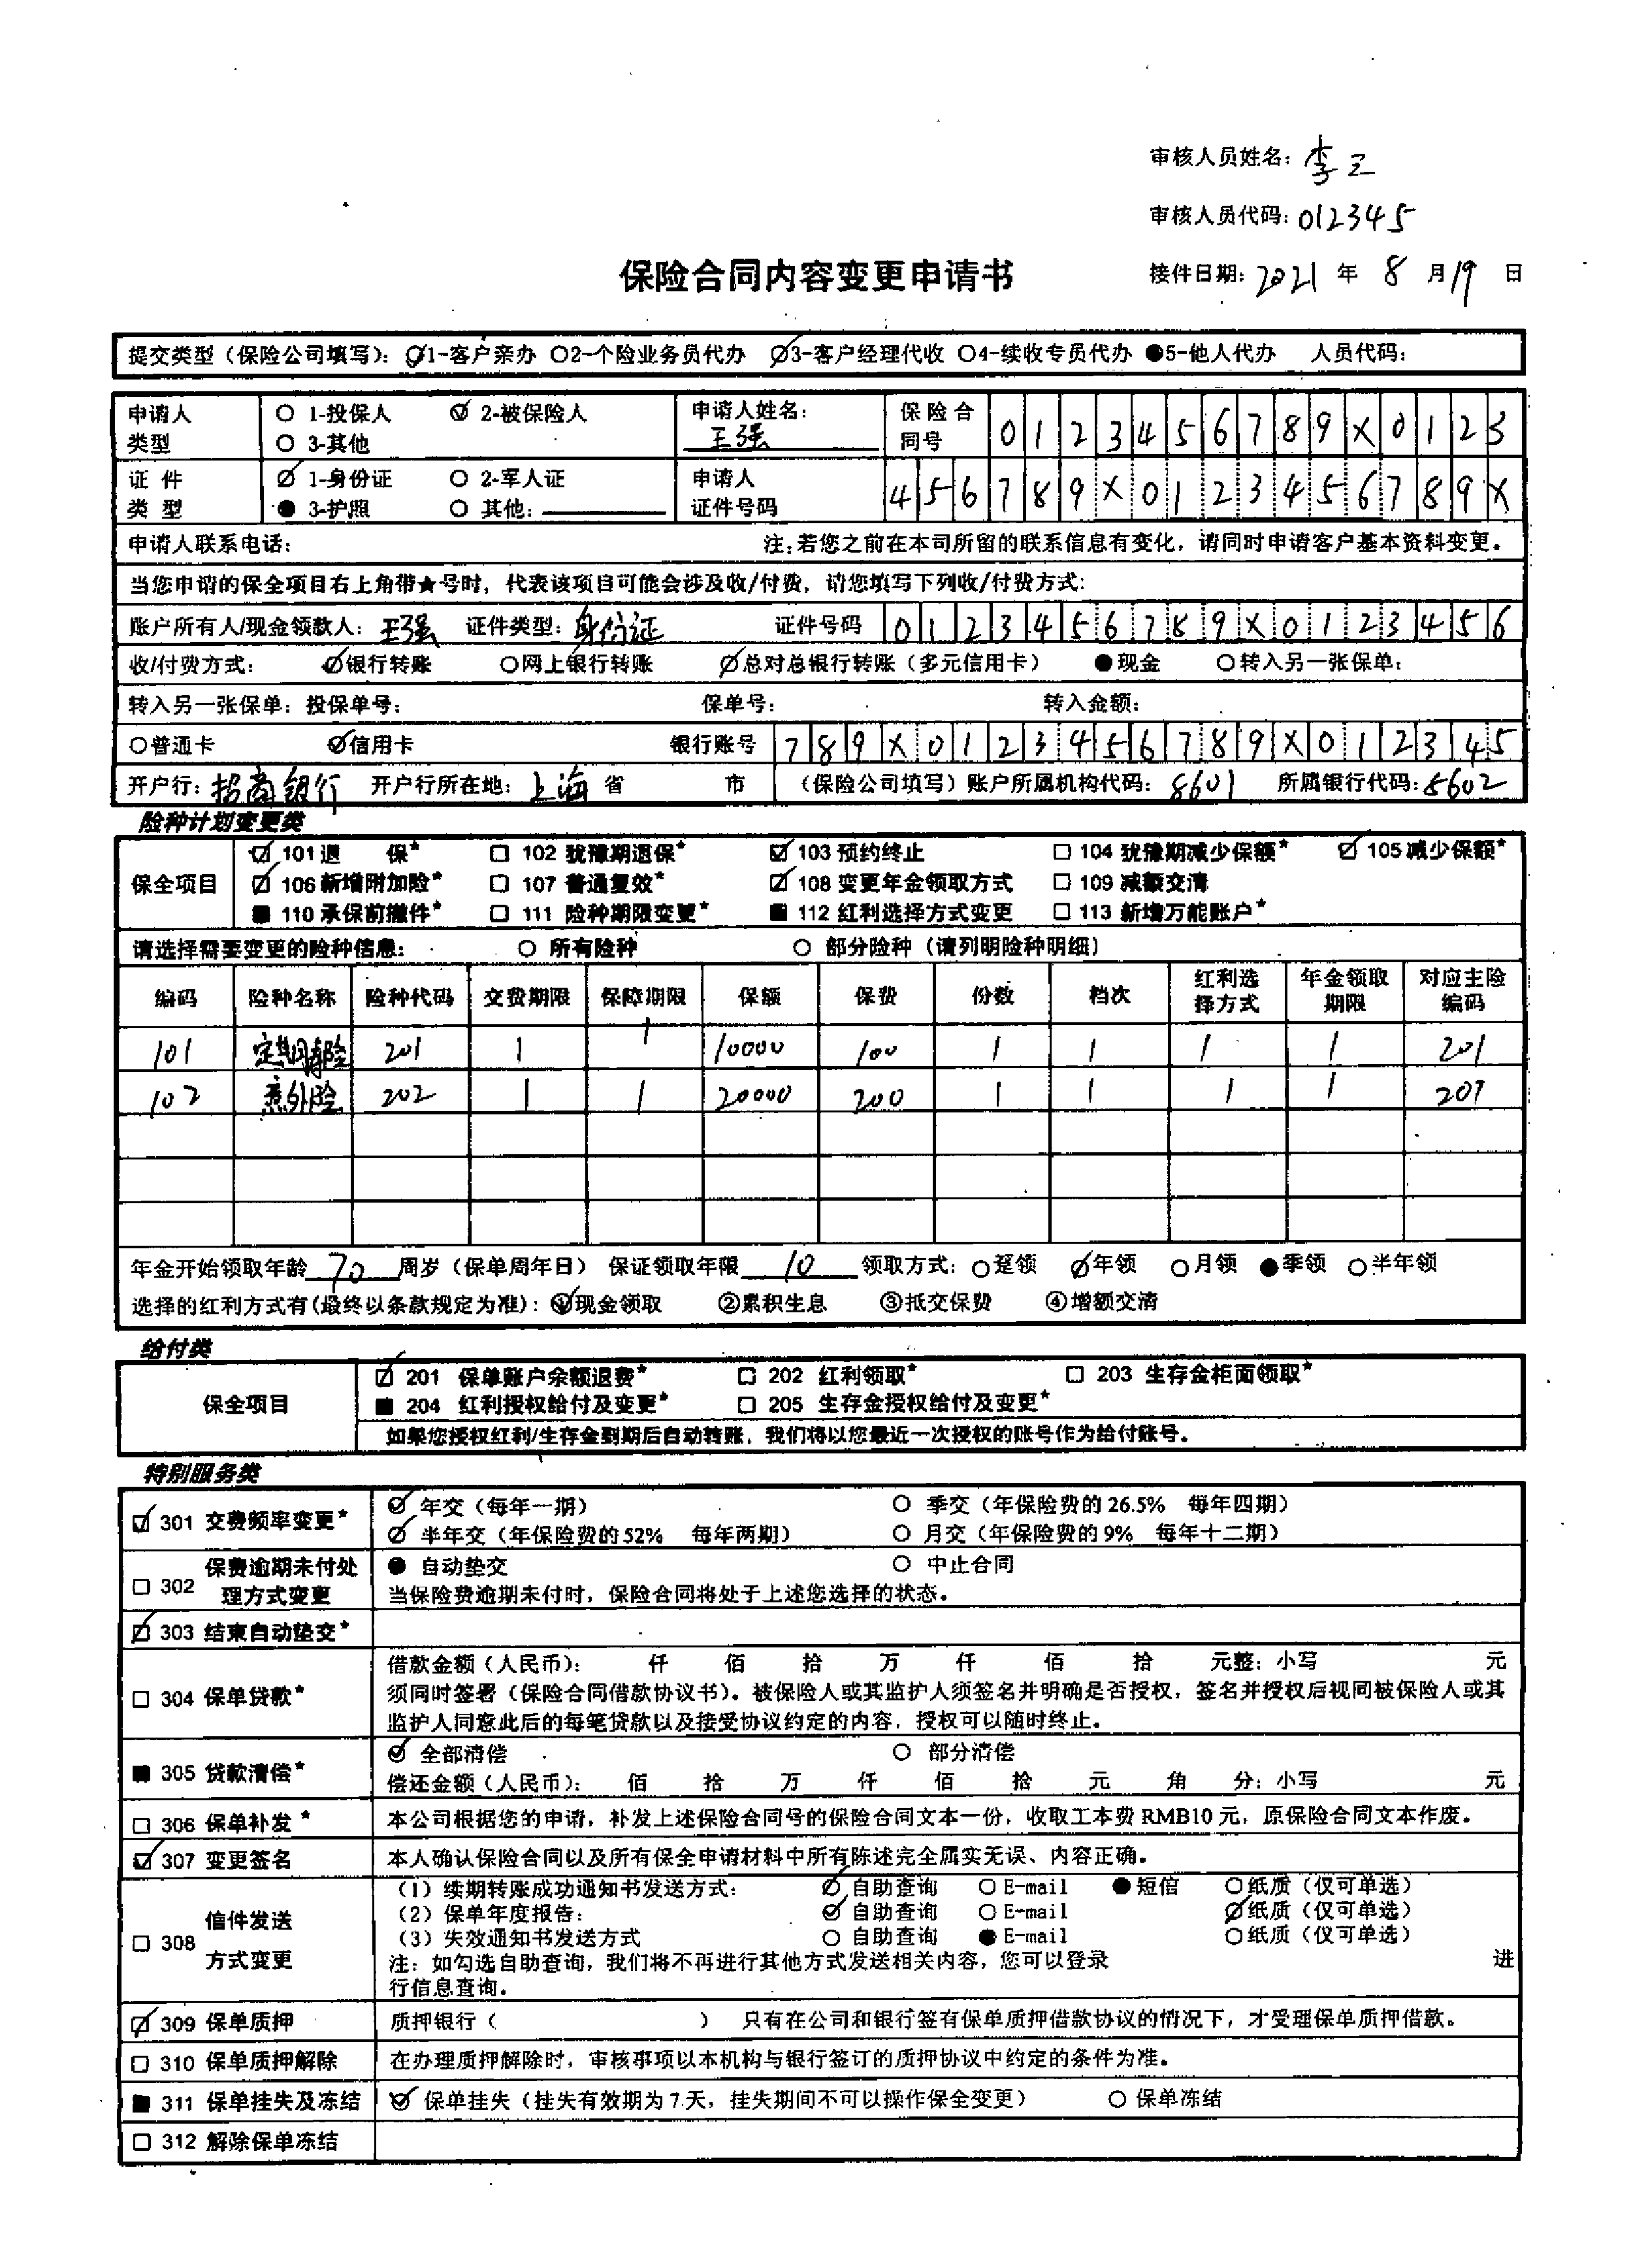 审核人员姓名：李三
审核人员代码：012345
保险合同内容变更申请书
接件日期：2021 年 8 月 19 日
提交类型（保险公司填写）：1-客户亲办 ○2-个险业务员代办 3-客户经理代收 ○4-续收专员代办 ●5-他人代办 人员代码：
申请人类型 ○ 1-投保人 2-被保险人 ○ 3-其他 申请人姓名：王强 保险合同号 0123456789X0123
证件类型 1-身份证 ○ 2-军人证 ● 3-护照 ○ 其他： 申请人证件号码 456789X0123456789X
申请人联系电话： 注：若您之前在本司所留的联系信息有变化，请同时申请客户基本资料变更。
当您申请的保全项目右上角带★号时，代表该项目可能会涉及收/付费，请您填写下列收/付费方式：
账户所有人/现金领款人：王强 证件类型：身份证 证件号码 0123456789X0123456
收/付费方式： 银行转账 ○网上银行转账 总对总银行转账（多元信用卡） ●现金 ○转入另一张保单：
转入另一张保单：投保单号： 保单号： 转入金额：
○普通卡 信用卡 银行账号 789X0123456789X012345
开户行：招商银行 开户行所在地：上海 省 市 （保险公司填写）账户所属机构代码：8601 所属银行代码：8602
险种计划变更类
保全项目
☑ 101 退 保* □ 102 犹豫期退保* ☑ 103 预约终止 □ 104 犹豫期减少保额* ☑ 105 减少保额*
☑ 106 新增附加险* □ 107 普通复效* ☑ 108 变更年金领取方式 □ 109 减额交清
■ 110 承保前撤件* □ 111 险种期限变更* ■ 112 红利选择方式变更 □ 113 新增万能账户*
请选择需要变更的险种信息： ○ 所有险种 ○ 部分险种（请列明险种明细）
编码 险种名称 险种代码 交费期限 保障期限 保额 保费 份数 档次 红利选择方式 年金领取期限 对应主险编码
101 定期寿险 201 1 1 10000 100 1 1 1 1 201
102 意外险 202 1 1 20000 200 1 1 1 1 201
年金开始领取年龄 70 周岁（保单周年日） 保证领取年限 10 领取方式：○趸领 年领 ○月领 ●季领 ○半年领
选择的红利方式有(最终以条款规定为准)：①现金领取 ②累积生息 ③抵交保费 ④增额交清
给付类
保全项目
☑ 201 保单账户余额退费* □ 202 红利领取* □ 203 生存金柜面领取*
■ 204 红利授权给付及变更* □ 205 生存金授权给付及变更*
如果您授权红利/生存金到期后自动转账，我们将以您最近一次授权的账号作为给付账号。
特别服务类
☑ 301 交费频率变更* 年交（每年一期） ○ 季交（年保险费的 26.5% 每年四期）
半年交（年保险费的 52% 每年两期） ○ 月交（年保险费的 9% 每年十二期）
□ 302 保费逾期未付处理方式变更 ● 自动垫交 ○ 中止合同
当保险费逾期未付时，保险合同将处于上述您选择的状态。
☑ 303 结束自动垫交*
□ 304 保单贷款* 借款金额（人民币）： 仟 佰 拾 万 仟 佰 拾 元整：小写 元
须同时签署（保险合同借款协议书）。被保险人或其监护人须签名并明确是否授权，签名并授权后视同被保险人或其
监护人同意此后的每笔贷款以及接受协议约定的内容，授权可以随时终止。
■ 305 贷款清偿* 全部清偿 ○ 部分清偿
偿还金额（人民币）： 佰 拾 万 仟 佰 拾 元 角 分：小写 元
□ 306 保单补发* 本公司根据您的申请，补发上述保险合同号的保险合同文本一份，收取工本费 RMB10 元，原保险合同文本作废。
☑ 307 变更签名 本人确认保险合同以及所有保全申请材料中所有陈述完全属实无误、内容正确。
□ 308 信件发送方式变更
（1）续期转账成功通知书发送方式： 自助查询 ○ E-mail ●短信 ○纸质（仅可单选）
（2）保单年度报告： 自助查询 ○ E-mail 纸质（仅可单选）
（3）失效通知书发送方式 ○ 自助查询 ● E-mail ○纸质（仅可单选）
注：如勾选自助查询，我们将不再进行其他方式发送相关内容，您可以登录 进
行信息查询。
☑ 309 保单质押 质押银行（ ） 只有在公司和银行签有保单质押借款协议的情况下，才受理保单质押借款。
□ 310 保单质押解除 在办理质押解除时，审核事项以本机构与银行签订的质押协议中约定的条件为准。
■ 311 保单挂失及冻结 保单挂失（挂失有效期为 7 天，挂失期间不可以操作保全变更） ○ 保单冻结
□ 312 解除保单冻结